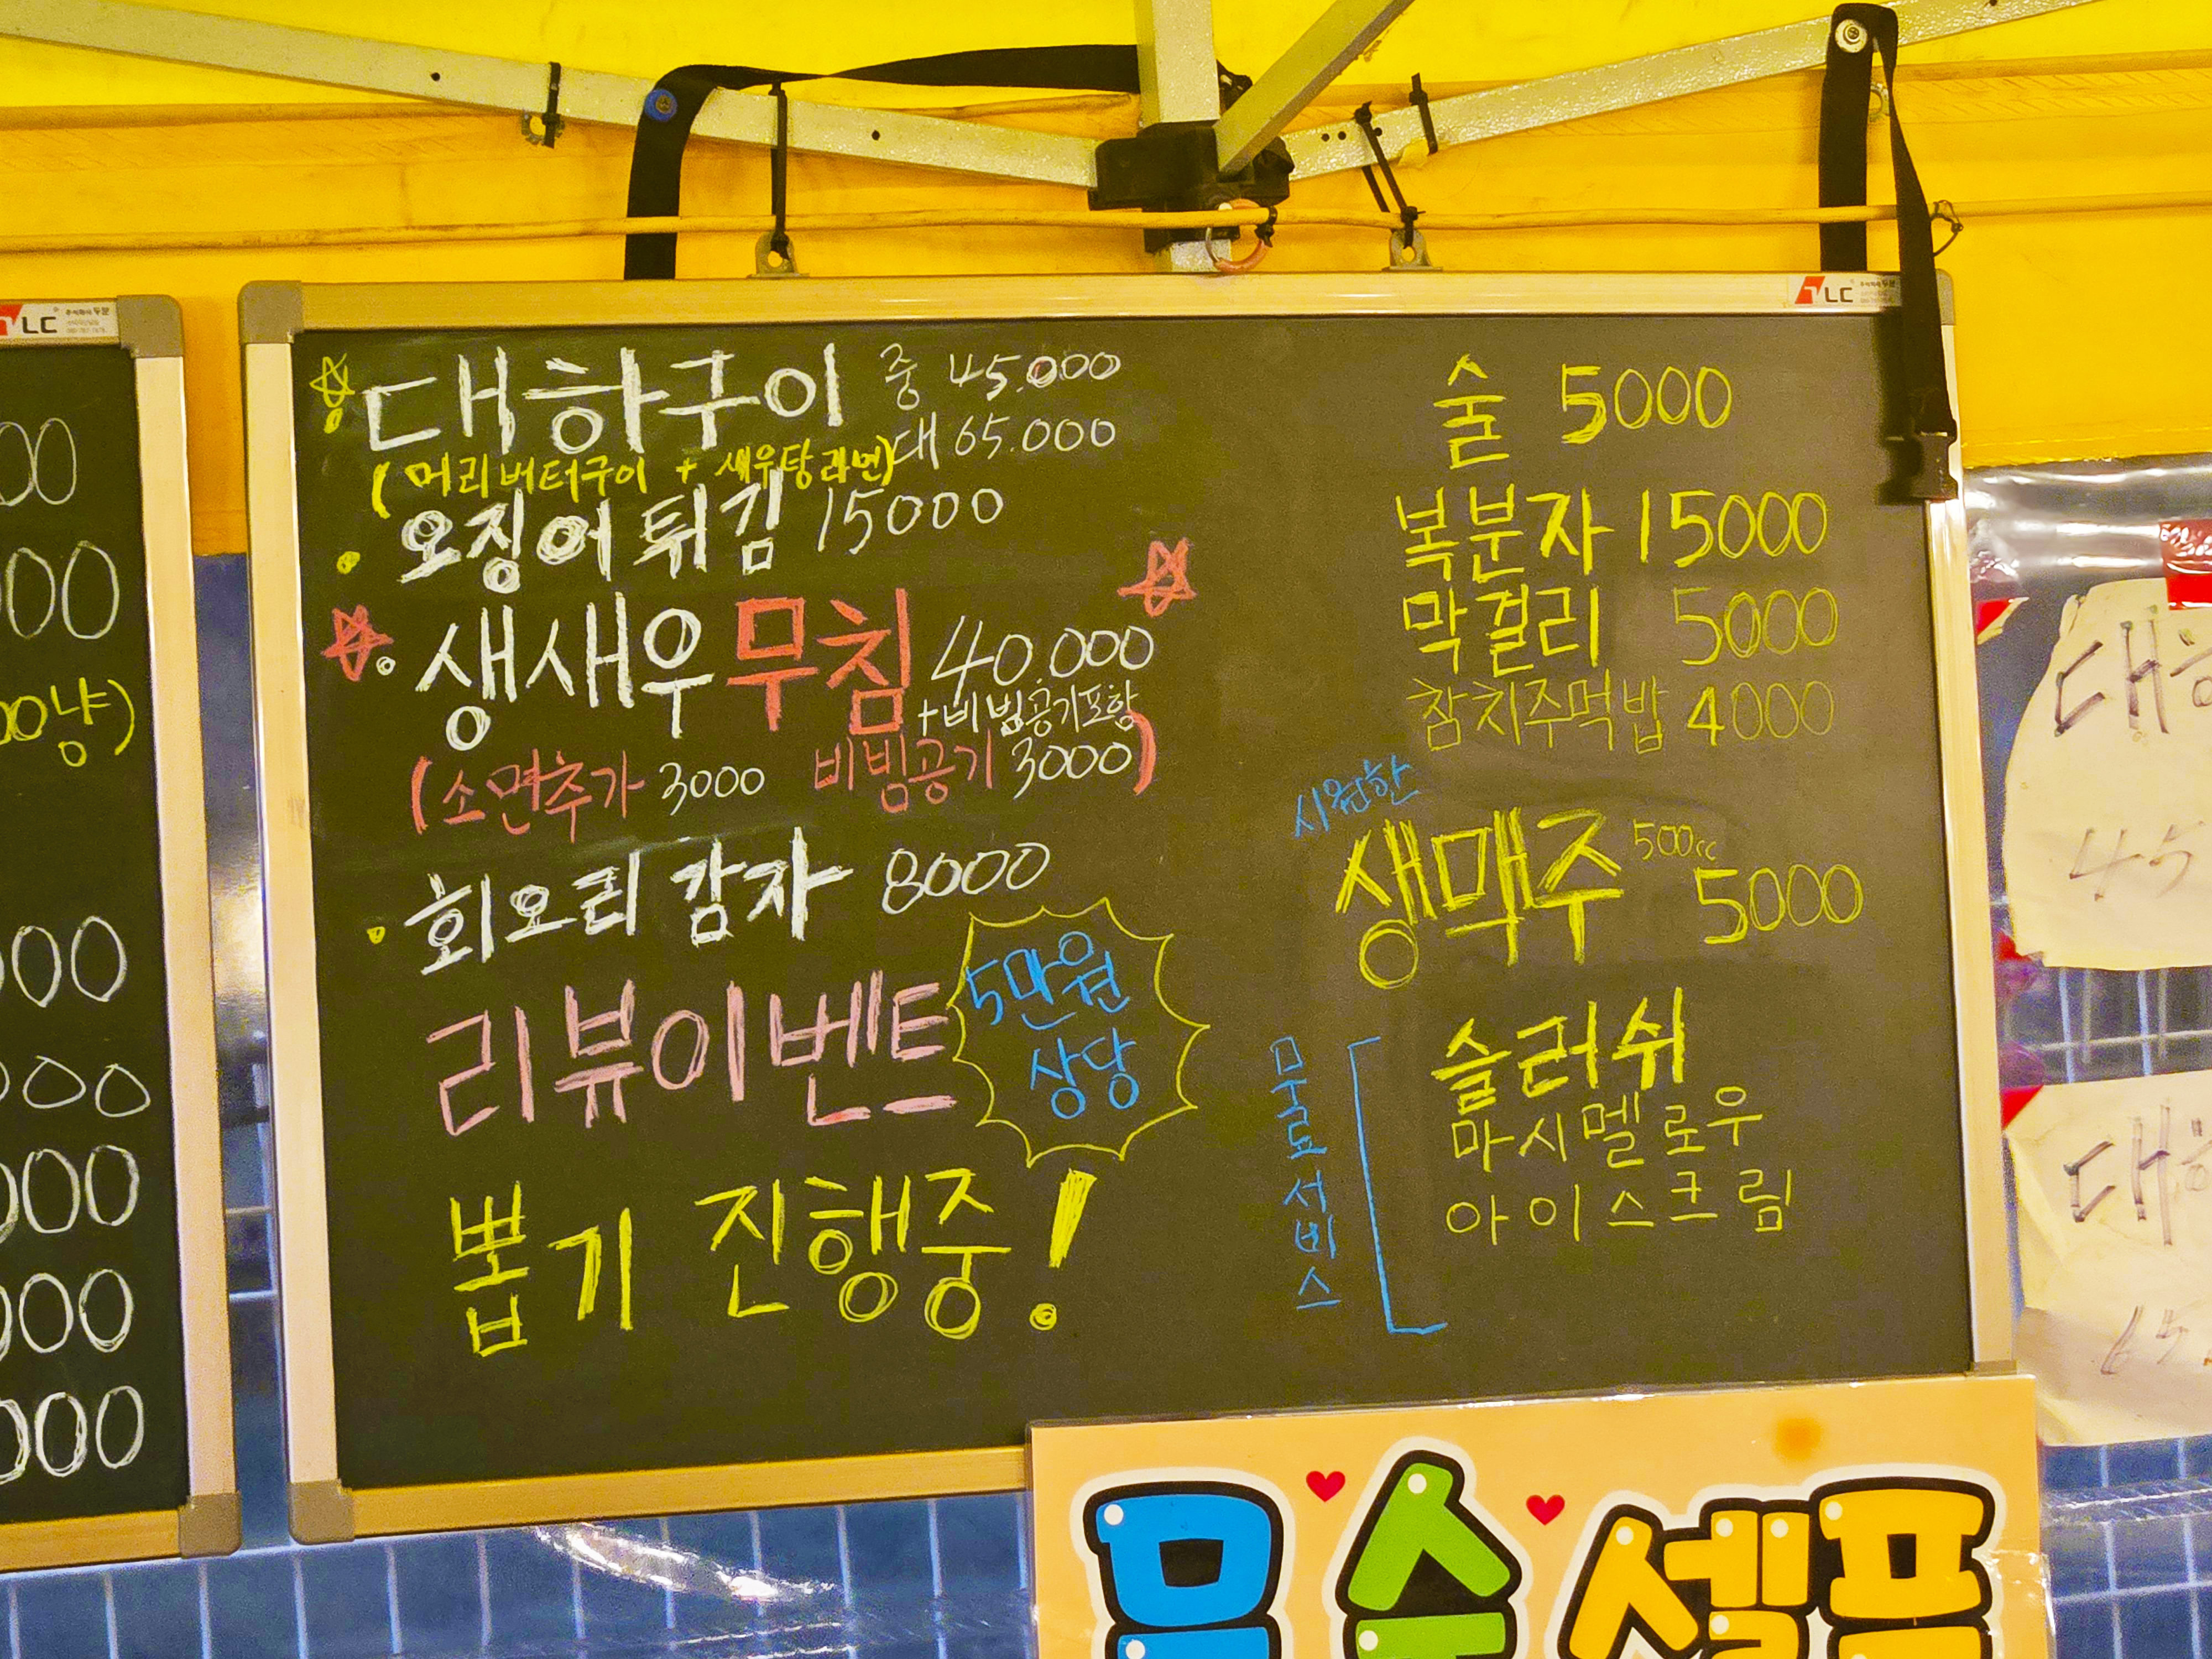 대하구이 중 45.000
대 65.000
(머리버터구이 + 새우탕라면)
오징어 튀김 15000
생새우무침 40.000
+비빔공기포함
(소면추가 3000 비빔공기 3000)
회오리 감자 8000
리뷰이벤트
5만원
상당
뽑기 진행중!
술 5000
복분자 15000
막걸리 5000
참치주먹밥 4000
시원한
생맥주 500cc 5000
무료서비스
슬러쉬
마시멜로우
아이스크림
LC
LC
00
00
00냥)
000
000
000
000
000
대하
45
대하
65